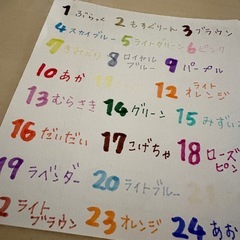 1 ぶらっく 2 もすぐりーん 3 ブラウン
4 スカイブルー 5 ライトグリーン 6 ピンク
7 きみどり 8 ロイヤルブルー 9 パープル
10 あか 12 ライトオレンジ
13 むらさき 14 グリーン 15 みずい
16 だいだい 17 こげちゃ 18 ローズピン
19 ラベンダー 20 ライトブルー
2 ライトブラウン 23 オレンジ 24 あお